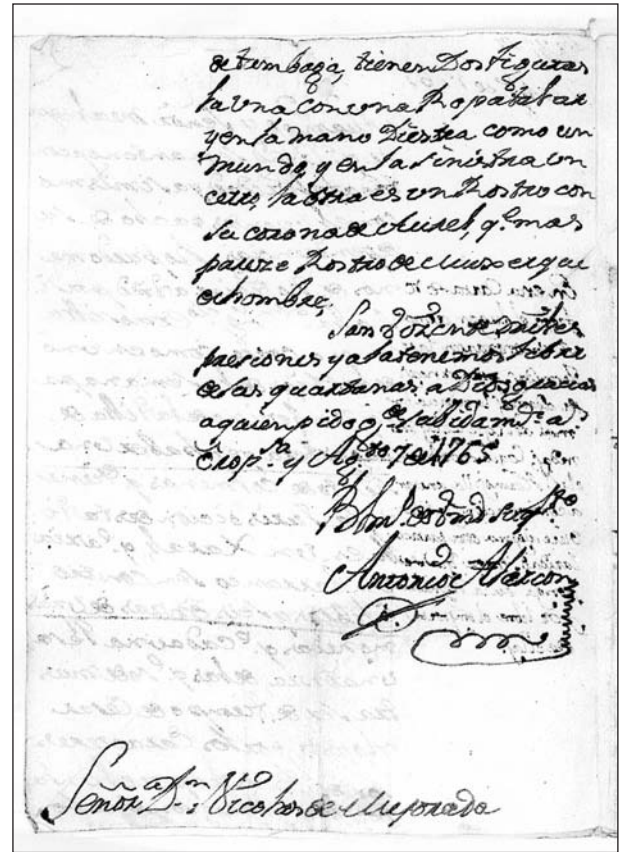 de tumbaga, tienen Dos figuras
la Una con una Ropa talar
y en la mano Diestra como un
mundo, y en la sinistra un
cetro, la otra es un Rostro con
su corona de Aurel, q.e mas
pareze Rostro de Muxer que
de hombre,
San Vizente
y a la tenemos libre
de las quartanas, a Dios gracias
a quien pido g.de la Vida m.s a.s
Orop.sa y Ag.to 7 de 1765
BLm.o de Vmd su
Antonio Alarcon
Señor D.n Nicolas de Mejorada